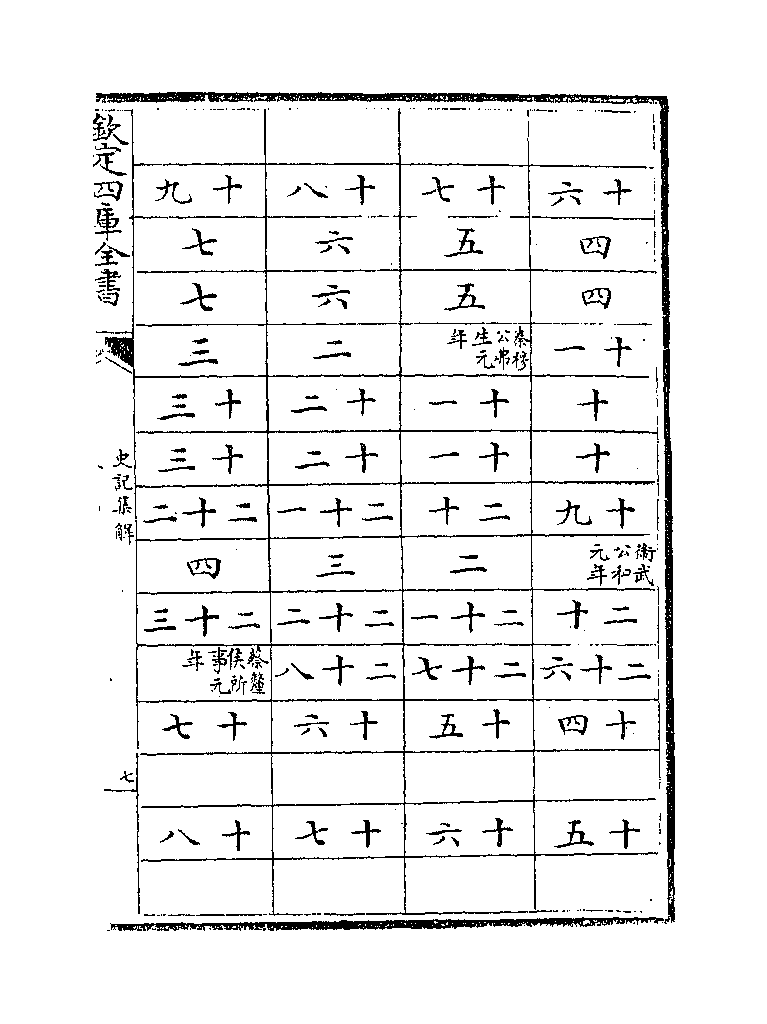 十六
四
四
十一
十
十
十九
衛武公和元年
二十
二十六
十四
十五
十七
五
五
秦穆公弗生元年
十一
十一
二十
二
二十一
二十七
十五
十六
十八
六
六
二
十二
十二
二十一
三
二十二
二十八
十六
十七
十九
七
七
三
十三
十三
二十二
四
二十三
蔡釐侯所事元年
十七
十八
欽定四庫全書
史記集解
七